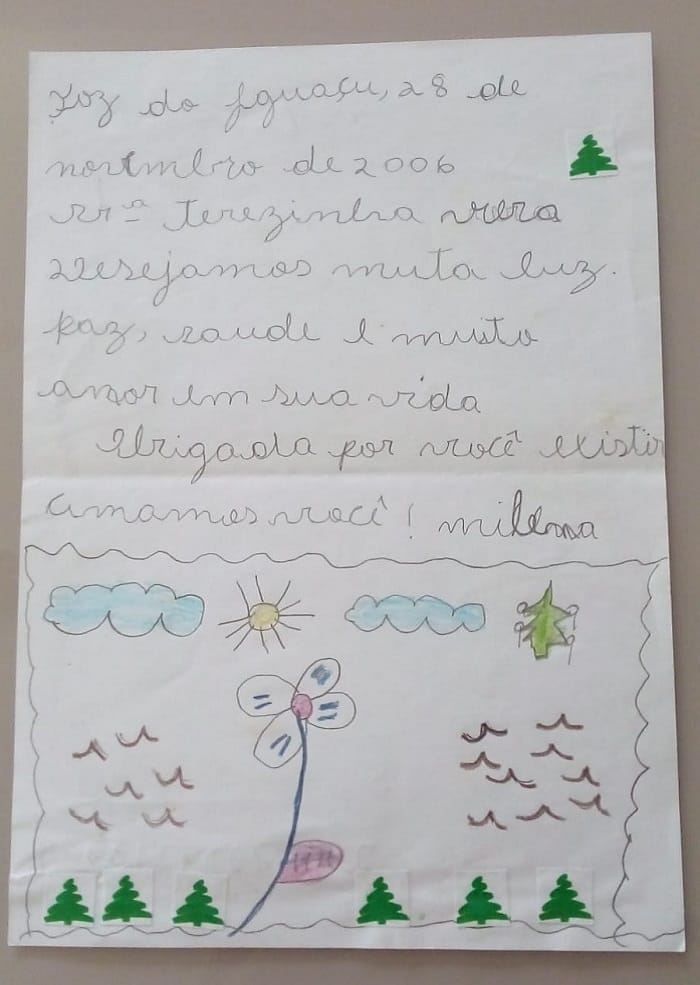 Foz do Iguaçu, 28 de
novembro de 2006
Srª Terezinha Vera
Desejamos muta luz.
paz, saude e muito
amor em sua vida
Obrigada por você existir
Amamos você! milena